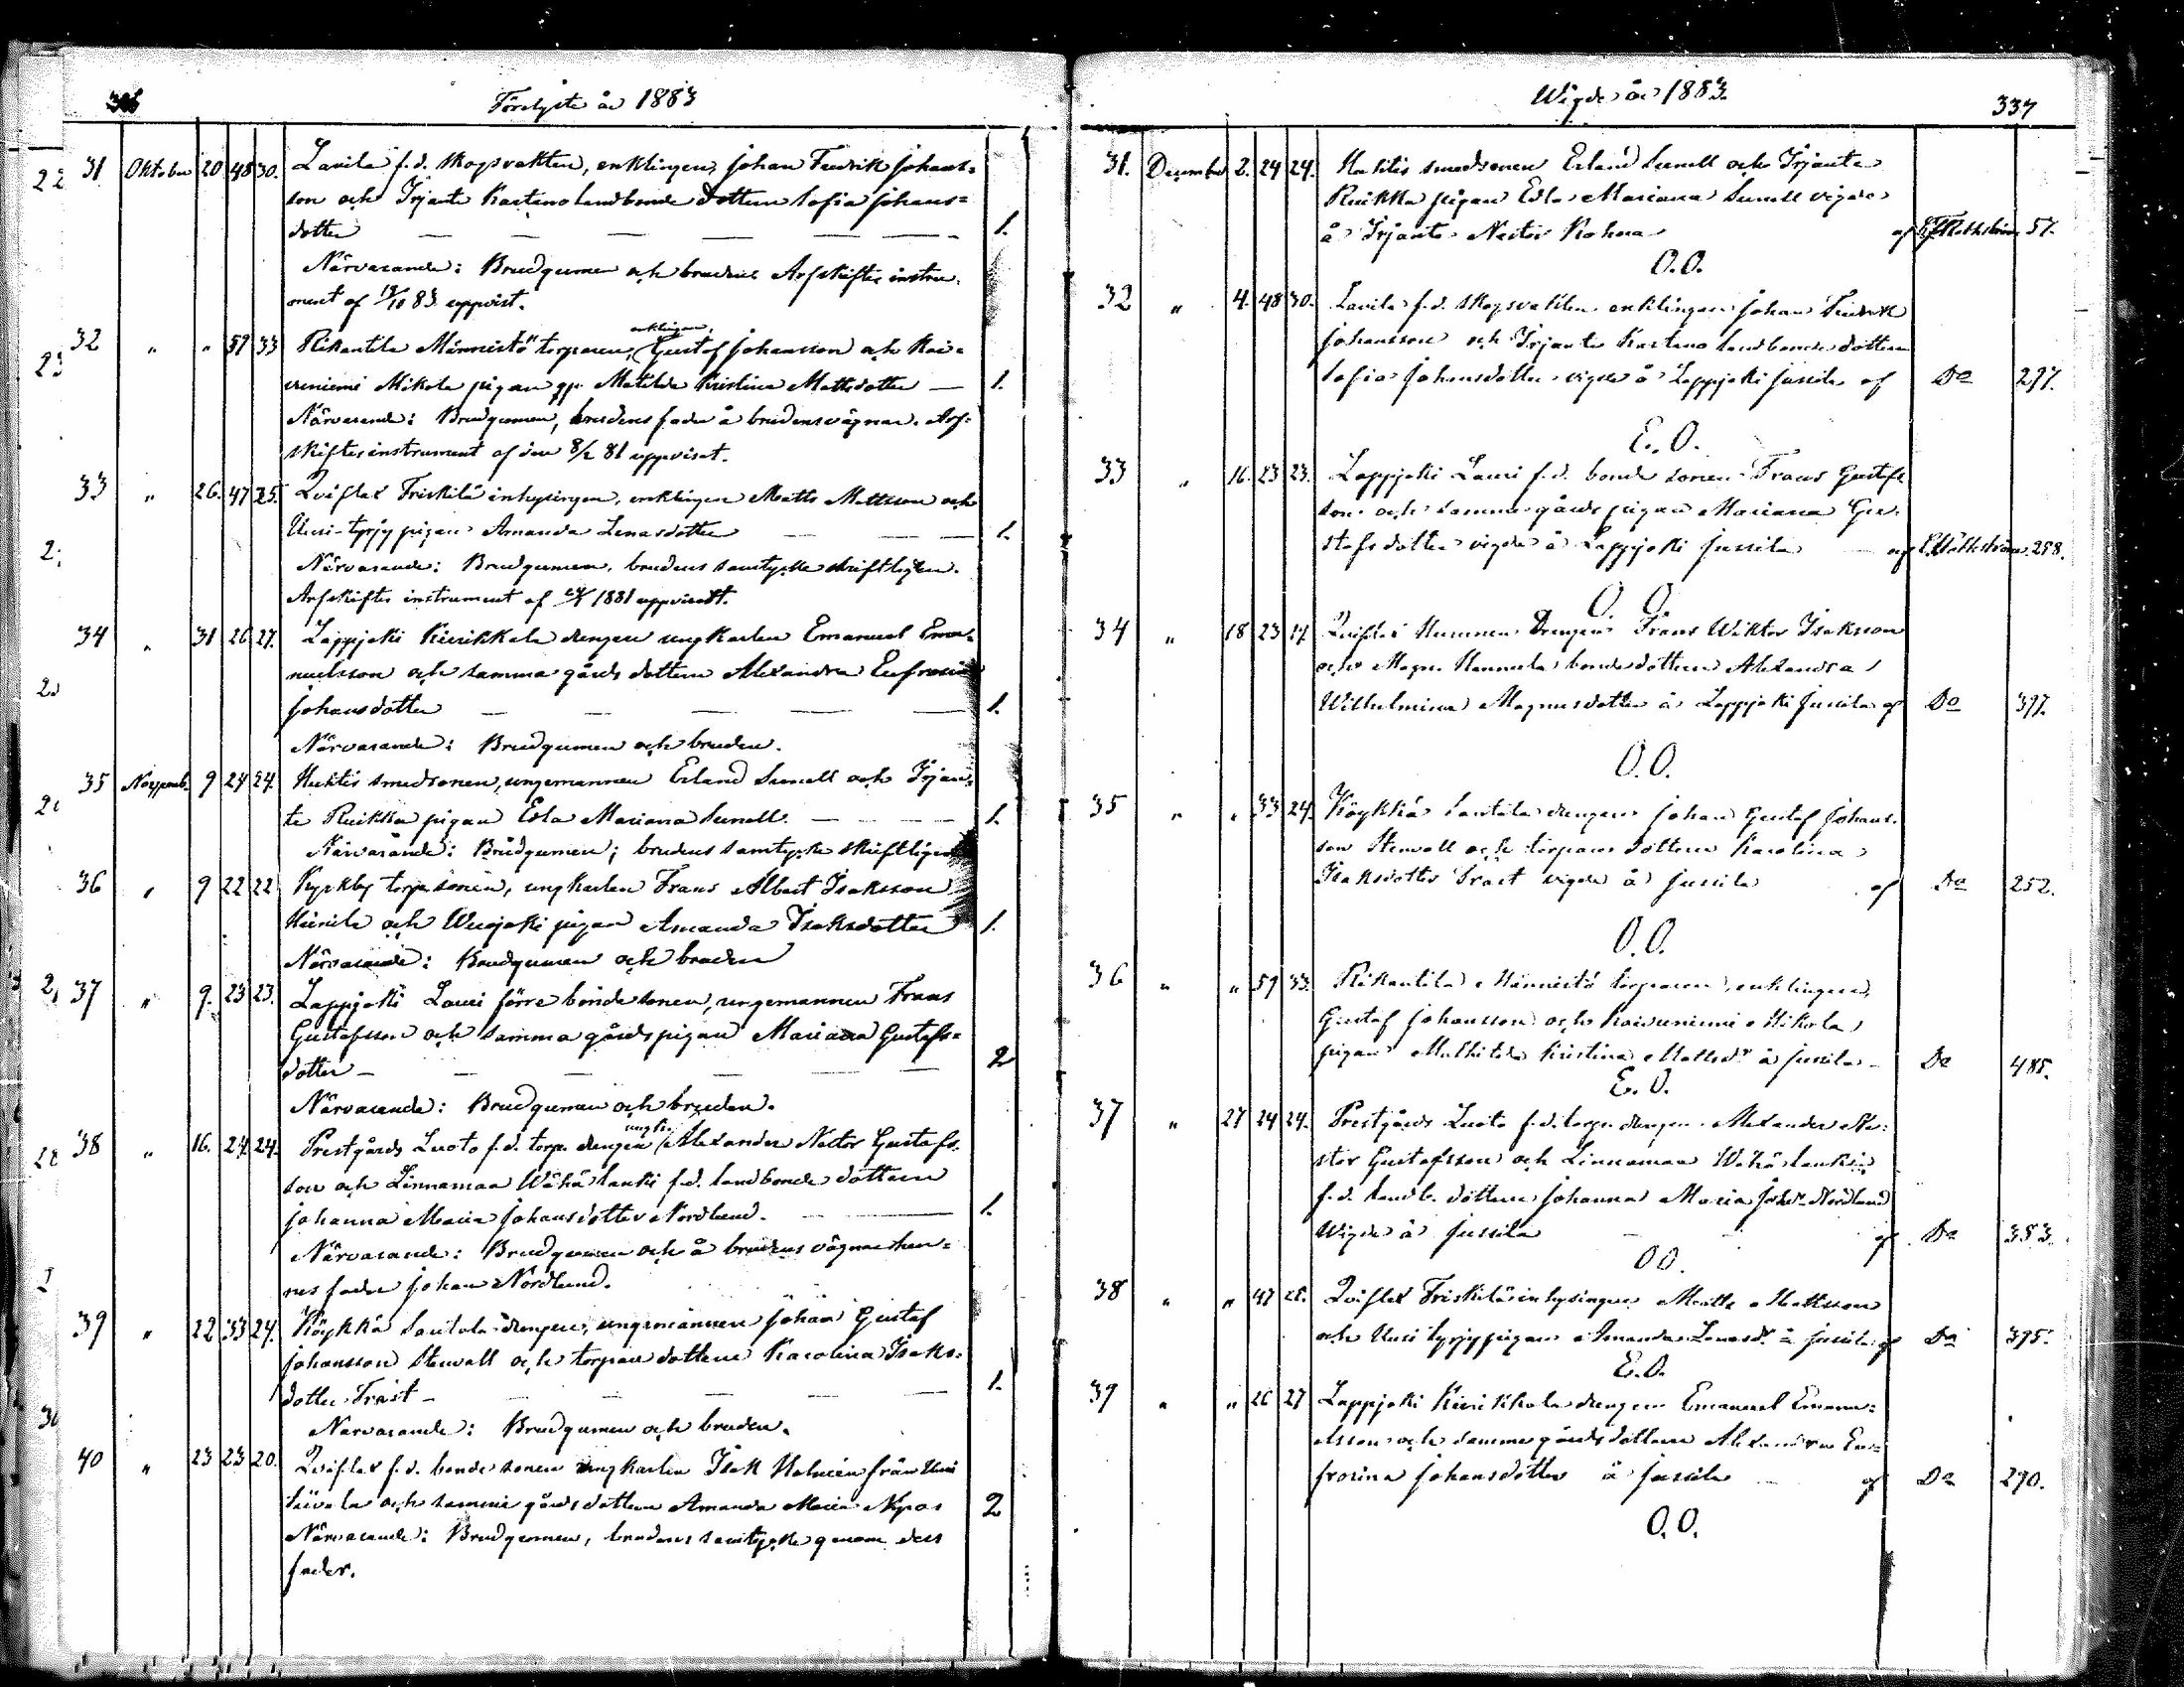 336
Förelyste år 1883
31 Oktober 20 48 30. Lavila f.d. skogsvakten, enklingen, Johan Fredrik Johans=
son och Irjante Kartano landbonde dottern Sofia Johans=
dotter — — — — — 1.
Närvarande: Brudgumen och brudens Arfskiftes instru=
ment af 19/10 83 uppvist.
32 " " 59 33 Rikantila Männistö torparen, enklingen, Gustaf Johansson och Kai=
vuniemi Mikola pigan Matilda Kristina Mattsdotter — 1.
Närvarande: Brudgumen, brudens fader å brudens vägnar. Arf=
skiftesinstrument af den 8/2 81 uppvisat.
33 " 26. 47 25. Qviflax Friskilä inhysingen, enklingen Matts Mattsson och
Uusi-tyrjy pigan Amanda Lenasdotter — — 1.
Närvarande: Brudgumen, brudens samtycke skriftligen.
Arfskiftes instrument af 1881 uppvisadt.
34 " 31 26 27. Lappjoki Kierikkala drengen ungkarlen Emanuel Ema=
nuelsson och samma gårds dottern Alexandra Eufrosina
Johansdotter — — — — 1.
Närvarande: Brudgumen och bruden.
35 Novemb. 9 24 24. Huhtis smedsonen, ungemannen Erland Sunell och Irjan=
te Ruikka pigan Edla Mariana Sunell. — — — 1.
Närvarande: Brudgumen; brudens samtycke skriftligen
36 " 9 22 22 Kyrkby torp. sonen, ungkarlen Frans Albert Isaksson
Heinilä och Wuojoki pigan Amanda Isaksdotter 1.
Närvarande: Brudgumen och bruden
37 " 9. 23 23. Lappjoki Lauri förre bonde sonen, ungemannen Frans
Gustafsson och samma gårds pigan Mariana Gustafs=
dotter — — — — — 2
Närvarande: Brudgumen och bruden.
38 " 16. 24 24. Prestgårds Luoto f.d. torp. drengen Alexander Nestor Gustafs=
son och Linnamaa Wähä Lanki f.d. landbonde dottern
Johanna Maria Johansdotter Nordlund. — — 1.
Närvarande: Brudgumen och å brudens vägnar hen=
nes fader Johan Nordlund.
39 " 22 33 24. Köykkä Santala drengen, ungemannen Johan Gustaf
Johansson Stenvall och torpare dottern Karolina Isaks=
dotter Trast — — — — 1.
Närvarande: Brudgumen och bruden.
40 " 23 23 20. Qviflax f.d. bonde sonen ungkarlen Isak från Uusi
och samma gårds dottern Amanda Maria 2
Närvarande: Brudgumen, brudens samtycke genom dess
fader.
Wigde år 1883.
337
31. December 2. 24 24. Huhtis smedsonen Erland Sunell och Irjante
Ruikka pigan Edla Mariana Sunell vigde
å Irjante Nestor Rohna af 57.
O.O.
32 " 4. 48 30. Lavila f.d. skogsvakten enklingen Johan Fredrik
Johansson och Irjante Kartano landbonde dottern
Sofia Johansdotter vigde å Lappjoki Jussila af Do 297.
E.O.
33 " 16. 23 23. Lappjoki Lauri f.d. bonde sonen Frans Gustafs
son och samma gårds pigan Mariana Gu=
stafsdotter vigde å Lappjoki Jussila — af 258.
O.O.
34 " 18 23 17 Qviflax Drengen Frans Wiktor Isaksson
och Hannula bondedottern Alexandra
Wilhelmina Magnusdotter å Lappjoki Jussila af Do 397.
O.O.
35 " " 33 24. Köykkä Santala drengen Johan Gustaf Johans=
son Stenvall och torpare dottern Karolina
Isaksdotter Trast vigde å Jussila af Do 252.
O.O.
36 " " 59 33. Rikantila Männistö torparen, enklingen,
Gustaf Johansson och Kaivuniemi Mikola
pigan Mathilda Kristina Mattsdr å Jussila — Do 485.
E.O.
37 " 27 24 24. Prestgårds Luoto f.d. torp. drengen Alexander Ne=
stor Gustafsson och Linnamaa Wähä Lanki
f.d. landb. dottern Johanna Maria Johdr Nordlund
Wigde å Jussila — — af Do 353.
O.O.
38 " " 47 25. Qviflax Friskilä inhysingen Matts Mattsson
och Uusi tyrjy pigan Amanda Lenasdr å Jussila af Do 395.
E.O.
39 " " 26 27 Lappjoki Kierikkala drengen Emanuel Emanu=
elsson och samma gårds dottern Alexandra Eu=
frosina Johansdotter å Jussila — af Do 290.
O.O.